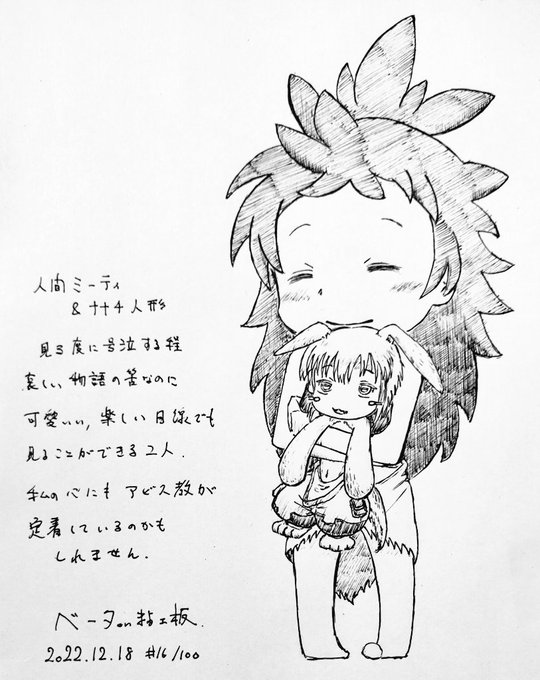 人間ミーティ
& ナナチ人形
見る度に号泣する程
哀しい物語の筈なのに
可愛いい,楽しい目線でも
見ることができる2人.
私の心にも アビス教が
定着しているのかも
しれません.
ベータon粘土板.
2022.12.18 #16/100